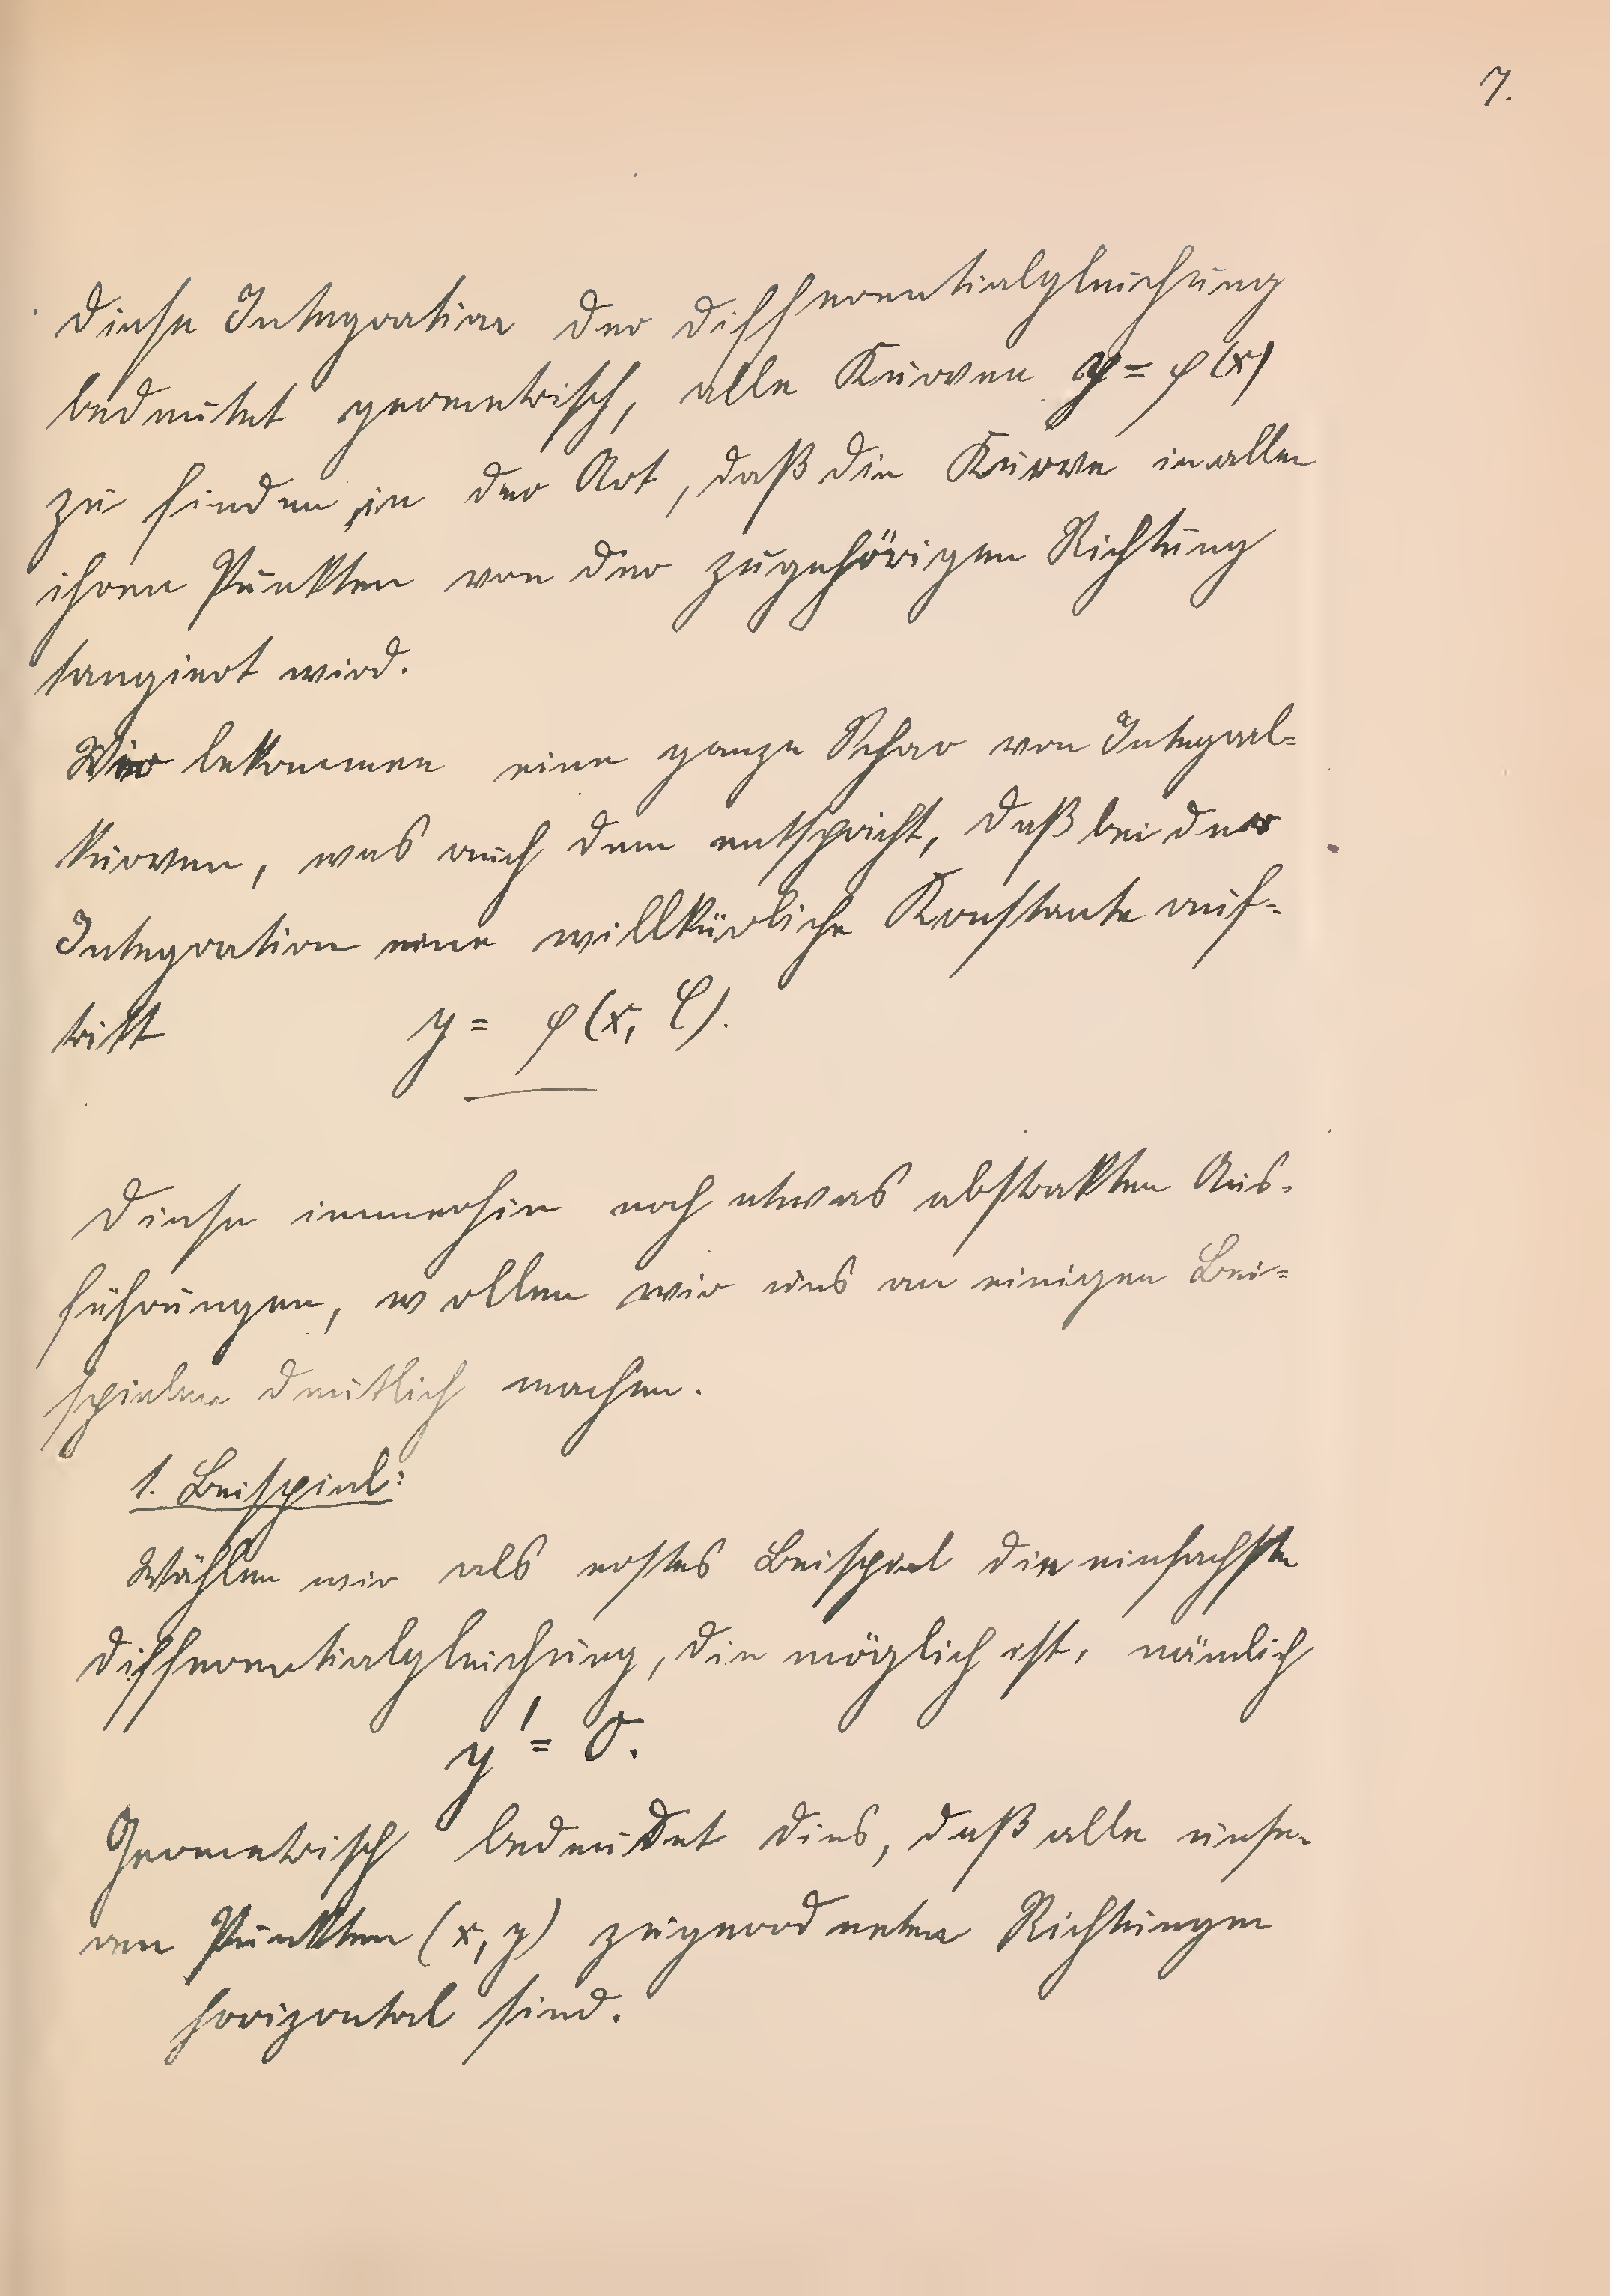 7.
Diese Integration der Differentialgleichung
bedeutet geometrisch, alle Kurven y = φ(x)
zu finden, in der Art, daß die Kurve in allen
ihren Punkten von der zugehörigen Richtung
tangiert wird.
Wir bekommen eine ganze Schar von Integral=
kurven, was auch dem entspricht, daß bei der
Integration eine willkürliche Konstante auf=
tritt y = φ(x, C).
Diese immerhin noch etwas abstrakten Aus=
führungen, wollen wir uns an einigen Bei=
spielen deutlich machen.
1. Beispiel:
Wählen wir als erstes Beispiel die einfachste
Differentialgleichung, die möglich ist, nämlich
y' = 0.
Geometrisch bedeutet dies, daß alle unse-
ren Punkten (x, y) zugeordneten Richtungen
horizontal sind.